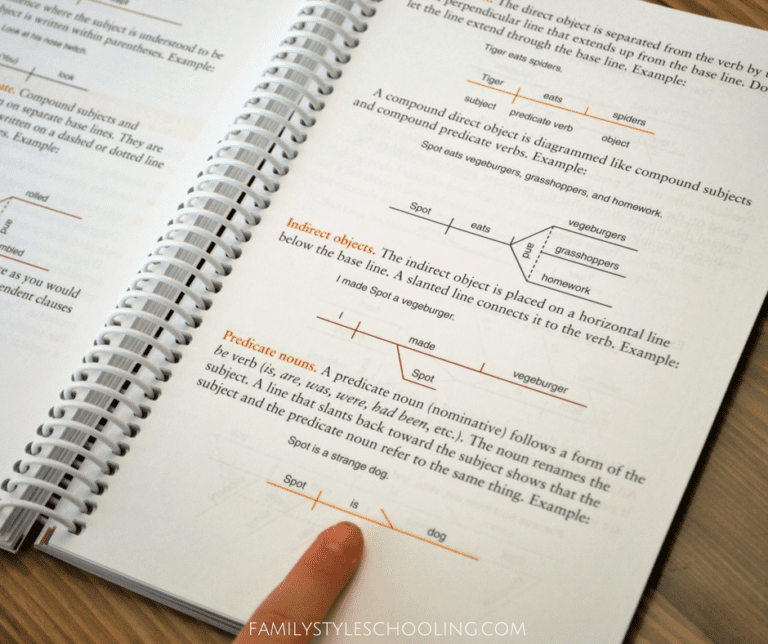 stence where the subject is understood to be
bject is written within parentheses. Example:
Look at his nose twitch.
(You)
look
ate. Compound subjects and
on separate base lines. They are
written on a dashed or dotted line
es. Example:
rolled
and
mbled
re as you would
endent clauses
The direct object is separated from the verb by
perpendicular line that extends up from the base line. Do
let the line extend through the base line. Example:
Tiger eats spiders.
Tiger
eats
spiders
subject
predicate verb
object
A compound direct object is diagrammed like compound subjects
and compound predicate verbs. Example:
Spot eats vegeburgers, grasshoppers, and homework.
Spot
eats
and
vegeburgers
grasshoppers
homework
Indirect objects. The indirect object is placed on a horizontal line
below the base line. A slanted line connects it to the verb. Example:
I made Spot a vegeburger.
I
made
vegeburger
Spot
Predicate nouns. A predicate noun (nominative) follows a form of the
be verb (is, are, was, were, had been, etc.). The noun renames the
subject. A line that slants back toward the subject shows that the
subject and the predicate noun refer to the same thing. Example:
Spot is a strange dog.
Spot
is
dog
FAMILYSTYLESCHOOLING.COM